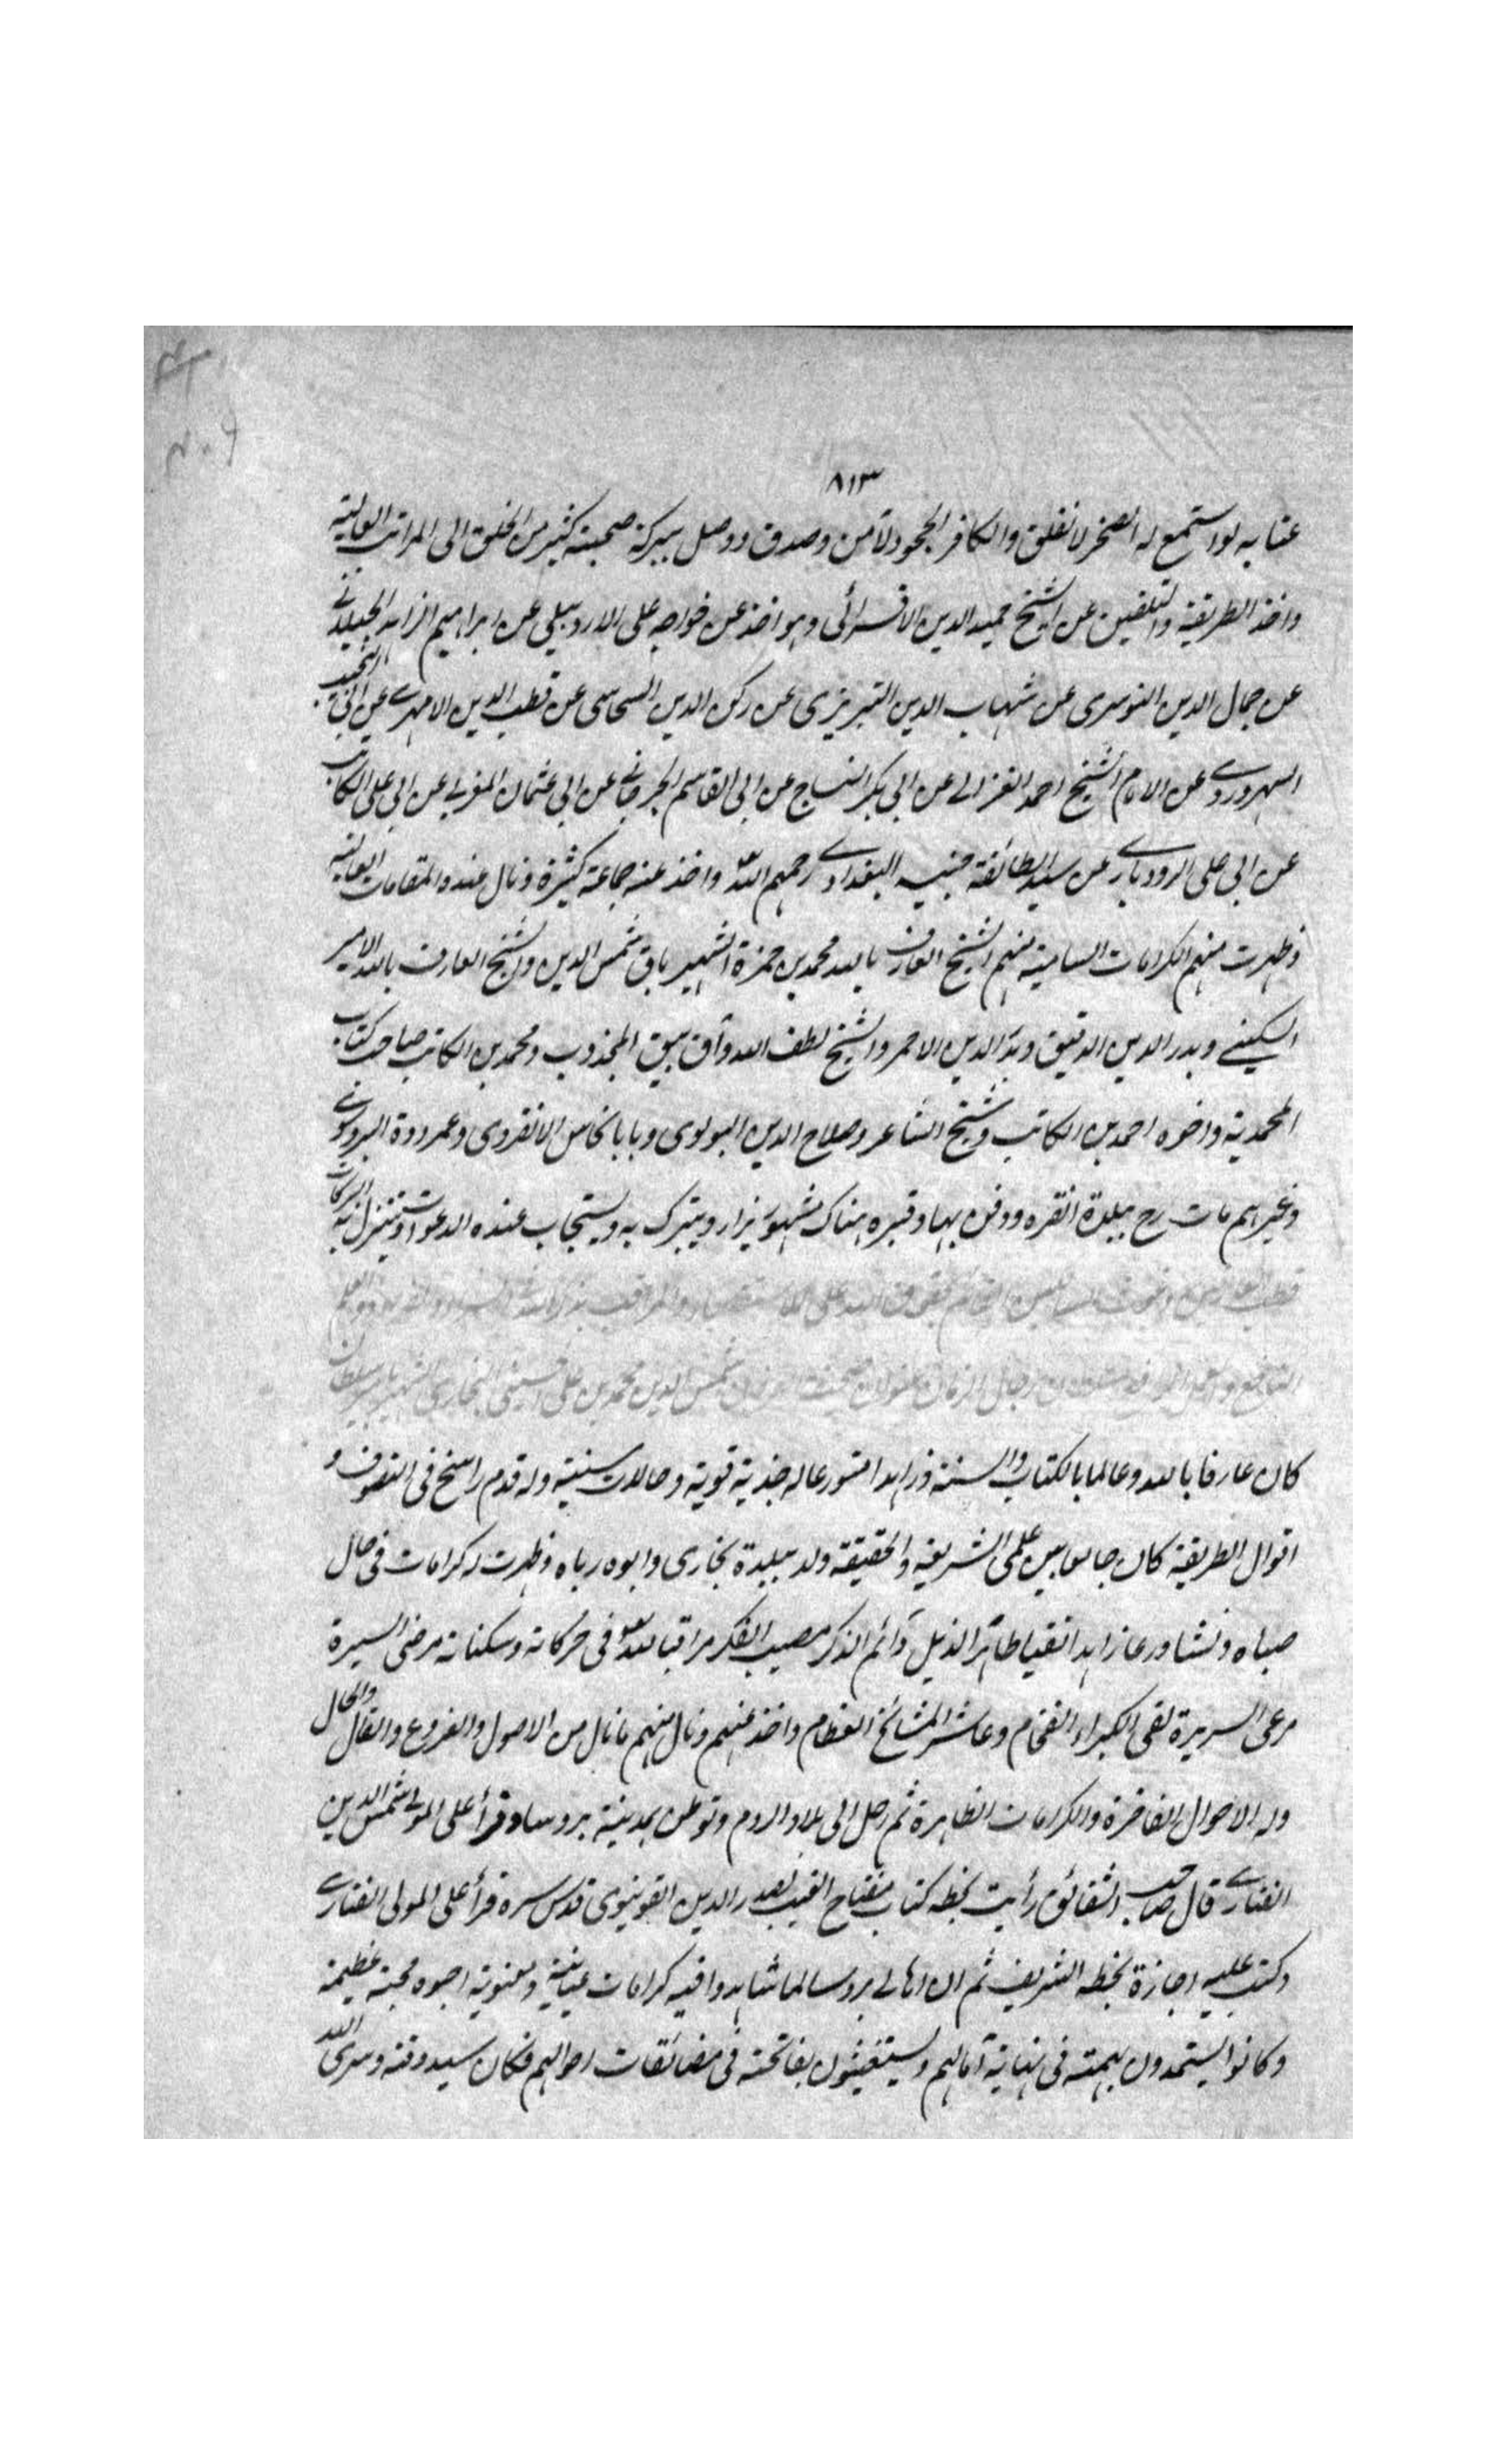 ٨١٣
عتابه لو استمع له الصخر لانفلق والكافر الجحود لآمن وصدق ووصل ببركة صحبته كثير من الخلق الى المراتب العالية
واخذ الطريقة والتلقين عن الشيخ حميد الدين الاقسرائى وهو اخذ عن خواجه على الاردبيلى عن ابراهيم الزاهد الجيلانى
عن جمال الدين التوسرى عن شهاب الدين التبريزى عن ركن الدين السحاسى عن قطب الدين الابهرى عن ابى النجيب
السهروردى عن الامام الشيخ احمد الغزالى عن ابى بكر النساج عن ابى القاسم الجرجانى عن ابى عثمان المغربى عن ابى على الكاتب
عن ابى على الرودبارى عن سيد الطائفة جنيد البغدادى رحمهم الله واخذ عنه جماعة كثيرة ونال عنده المقامات العالية
وظهرت منهم الكرامات السامية منهم الشيخ العارف بالله محمد بن حمزة الشهير باق شمس الدين والشيخ العارف بالله الامير
السكينى وبدر الدين الدقيق وبدر الدين الاحمر والشيخ لطف الله وآق بيق المجذوب ومحمد بن الكاتب صاحب كتاب
المحمدية واخوه احمد بن الكاتب وشيخ الشاعر وصلاح الدين البولوى وبابا نخاس الانقروى وعمر دده البروسوى
وغيرهم مات رح ببلدة انقره ودفن بها وقبره هناك مشهور يزار ويتبرك به ويستجاب عنده الدعوات وتتنزل به البركات
شمس الدين محمد بن على الحسينى البخارى الشهير بامير سلطان
كان عارفا بالله وعالما بالكتاب والسنة وزاهدا متورعا له جذبة قوية وحالات سنية وله قدم راسخ فى التصوف و
اقوال الطريقة كان جامعا بين علمى الشريعة والحقيقة ولد ببلدة بخارى وابوه رباه وظهرت له كرامات فى حال
صباه ونشأ ورعا زاهدا تقيا طاهر الذيل دائم الذكر مصيب الفكر مراقبا لله تعالى فى حركاته وسكناته مرضى السيرة
مرعى السريرة لقى الكبراء الفخام وعاشر المشائخ العظام واخذ عنهم ونال منهم ما نال من الاصول والفروع والقال والحال
وله الاحوال الفاخرة والكرامات الظاهرة ثم رحل الى بلاد الروم وتوطن بمدينة بروسا وقرأ على المولى شمس الدين
الفنارى قال صاحب الشقائق رأيت بخطه كتاب مفتاح الغيب لصدر الدين القونيوى قدس سره قرأ على المولى الفنارى
وكتب عليه اجازة بخطه الشريف ثم ان اهالى بروسا لما شاهدوا فيه كرامات عيانية ومعنوية احبوه محبة عظيمة
وكانوا يستمدون بهمته فى نهاية آمالهم ويستغيثون بفاتحته فى مضائقات احوالهم فكان سيد وقته وسرى الله